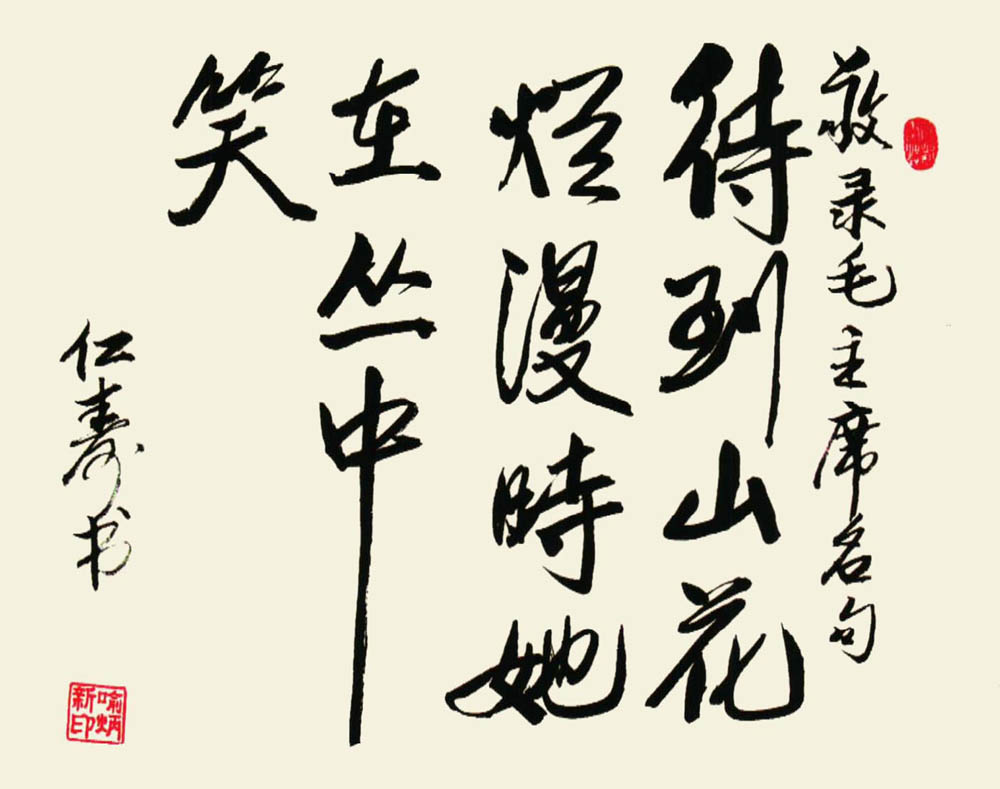 敬录毛主席名句
待到山花
烂漫時她
在丛中
笑
仁寿书
喻炳新印